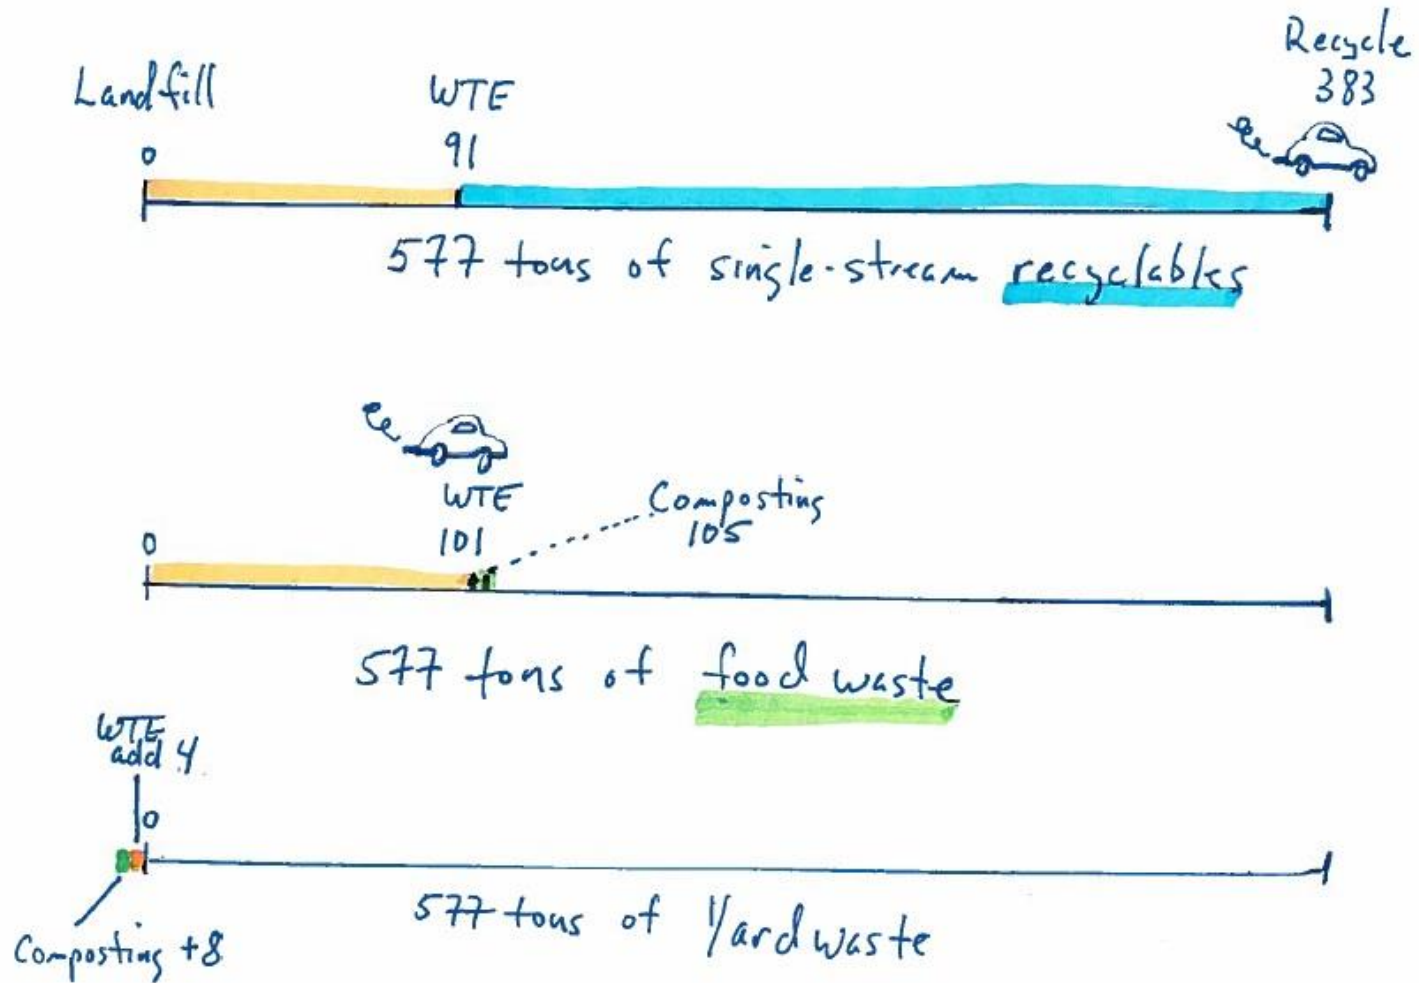 Landfill
0
WTE
91
Recycle
383
577 tons of single-stream recyclables
WTE
101
Composting
105
0
577 tons of food waste
WTE
add 4
0
577 tons of Yard waste
Composting +8